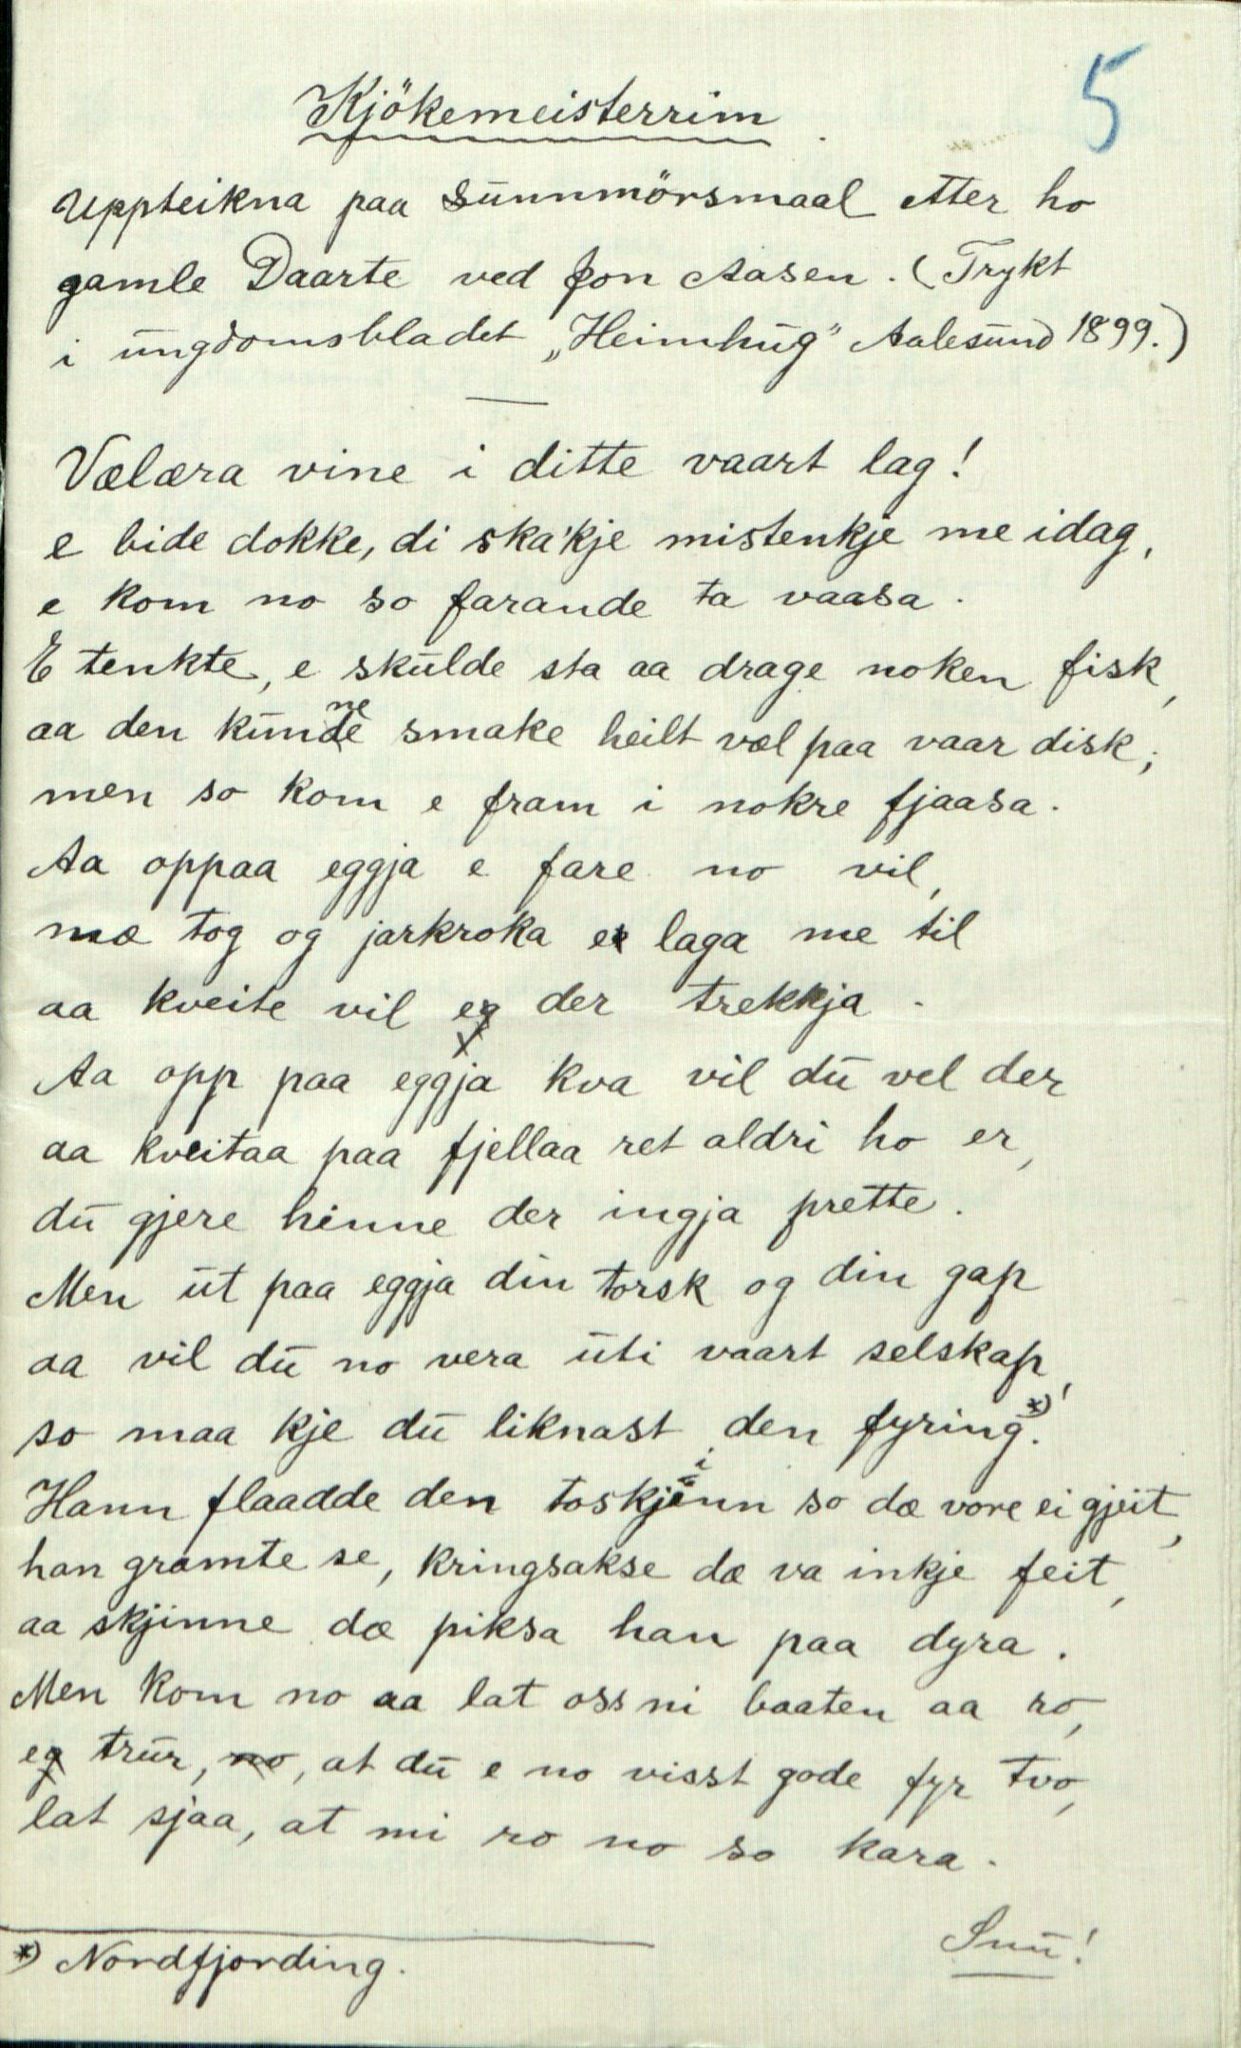 5
Kjökemeisterrim
Uppteikna paa Sunnmörsmaal etter ho
gamle Daarte ved Jon Aasen. (Trykt
i ungdomsbladet „Heimhug" Aalesund 1899.)
Vælæra vine i ditte vaart lag!
e bide dokke, di ska'kje mistenkje me idag,
e kom no so farande ta vaasa.
E tenkte, e skulde sta aa drage noken fisk,
aa den kunne smake heilt væl paa vaar disk;
men so kom e fram i nokre fjaasa.
Aa oppaa eggja e fare no vil,
mæ tog og jarkroka e laga me til
aa kveite vil e der trekkja.
Aa opp paa eggja kva vil du vel der
aa kveitaa paa fjellaa ret aldri ho er,
du gjere hinne der ingja prette.
Men ut paa eggja din torsk og din gap
aa vil du no vera uti vaart selskap,
so maa kje du liknast den fyring*)!
Hann flaadde den toskjinn so dæ vore ei gjeit,
han gramte se, kringsakse dæ va inkje feit,
aa skjinne dæ piksa han paa dyra.
Men kom no aa lat oss ni baaten aa ro,
e trur, at du e no visst gode fyr tvo,
lat sjaa, at mi ro no so kara.
Snu!
*) Nordfjording.